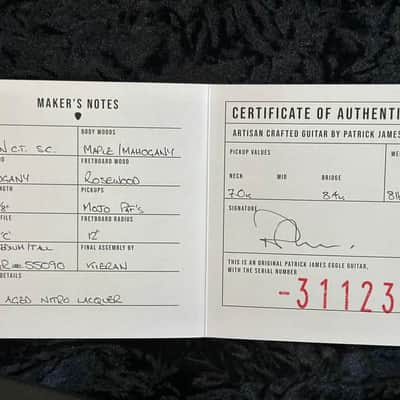 MAKER'S NOTES
BODY WOODS
N C.T. S.C. MAPLE/MAHOGANY
OOD FRETBOARD WOOD
OGANY ROSEWOOD
NGTH PICKUPS
MOJO PAF'S
FILE FRETBOARD RADIUS
"C" 12"
EDIUM/TALL FINAL ASSEMBLY BY
#55090 KIERAN
DETAILS
AGED NITRO LACQUER
CERTIFICATE OF AUTHENTI
ARTISAN CRAFTED GUITAR BY PATRICK JAMES
PICKUP VALUES WE
NECK MID BRIDGE
7.0K 8.4K 8lb
SIGNATURE
THIS IS AN ORIGINAL PATRICK JAMES EGGLE GUITAR,
WITH THE SERIAL NUMBER
-31123